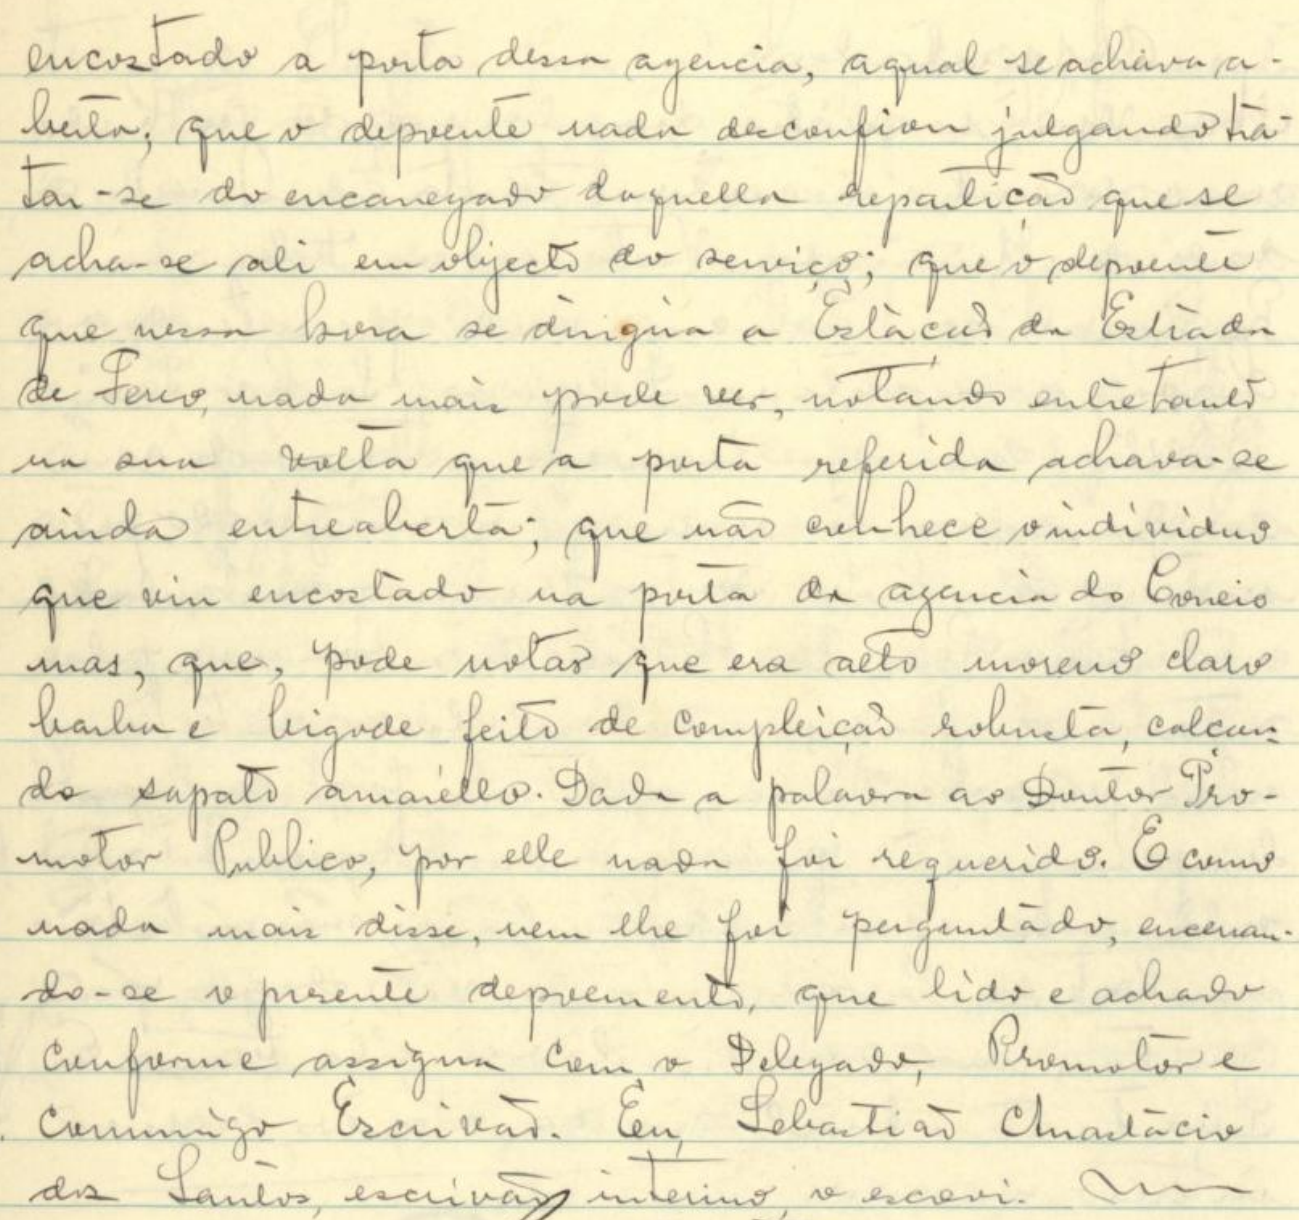 encostado a porta dessa agencia, aqual se achava a-
berta; que o depoente nada desconfiou julgando tra-
tar-se do encarregado daquella repartição que se
acha-se ali em objecto do serviço; que o depoente
que nessa hora se dirigia a Estação da Estrada
de Ferro, nada mais pode ver, notando entretanto
na sua volta que a porta referida achava-se
ainda entreaberta; que não conhece o individuo
que viu encostado na porta da agencia do Correio
mas, que, pode notar que era alto moreno claro
barba e bigode feito de compleição robusta, calçan-
do sapato amarello. Dada a palavra ao Doutor Pro-
motor Publico, por elle nada foi requerido. E como
nada mais disse, nem lhe foi perguntado, encerran-
do-se o presente depoemento, que lido e achado
conforme assigna com o Delegado, Promotor e
commigo Escrivão. Eu, Sebastião Anastácio
dos Santos, escrivão interino, o escrevi.